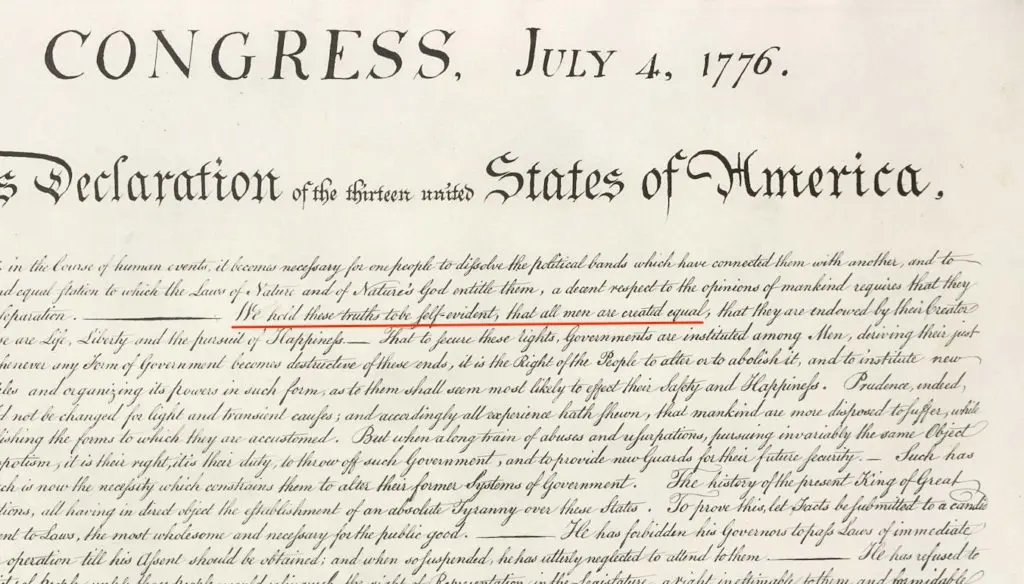 CONGRESS, JULY 4, 1776.
s Declaration of the thirteen united States of America,
in the Course of human events, it becomes necessary for one people to dissolve the political bands which have connected them with another, and to
equal station to which the Laws of Nature and of Nature's God entitle them, a decent respect to the opinions of mankind requires that they
separation. ——— We hold these truths to be self-evident, that all men are created equal, that they are endowed by their Creator
are Life, Liberty and the pursuit of Happiness.— That to secure these rights, Governments are instituted among Men, deriving their just
whenever any Form of Government becomes destructive of these ends, it is the Right of the People to alter or to abolish it, and to institute new
and organizing its powers in such form, as to them shall seem most likely to effect their Safety and Happiness. Prudence, indeed,
not be changed for light and transient causes; and accordingly all experience hath shewn, that mankind are more disposed to suffer, while
ishing the forms to which they are accustomed. But when a long train of abuses and usurpations, pursuing invariably the same Object
spotism, it is their right, it is their duty, to throw off such Government, and to provide new Guards for their future security.— Such has
ch is now the necessity which constrains them to alter their former Systems of Government. The history of the present King of Great
tions, all having in direct object the establishment of an absolute Tyranny over these States. To prove this, let Facts be submitted to a candid
ent to Laws, the most wholesome and necessary for the public good. ——— He has forbidden his Governors to pass Laws of immediate
operation till his Assent should be obtained; and when so suspended, he has utterly neglected to attend to them. ——— He has refused to
of People, unless those people would relinquish the right of Representation in the Legislature, a right inestimable to them, and formidable